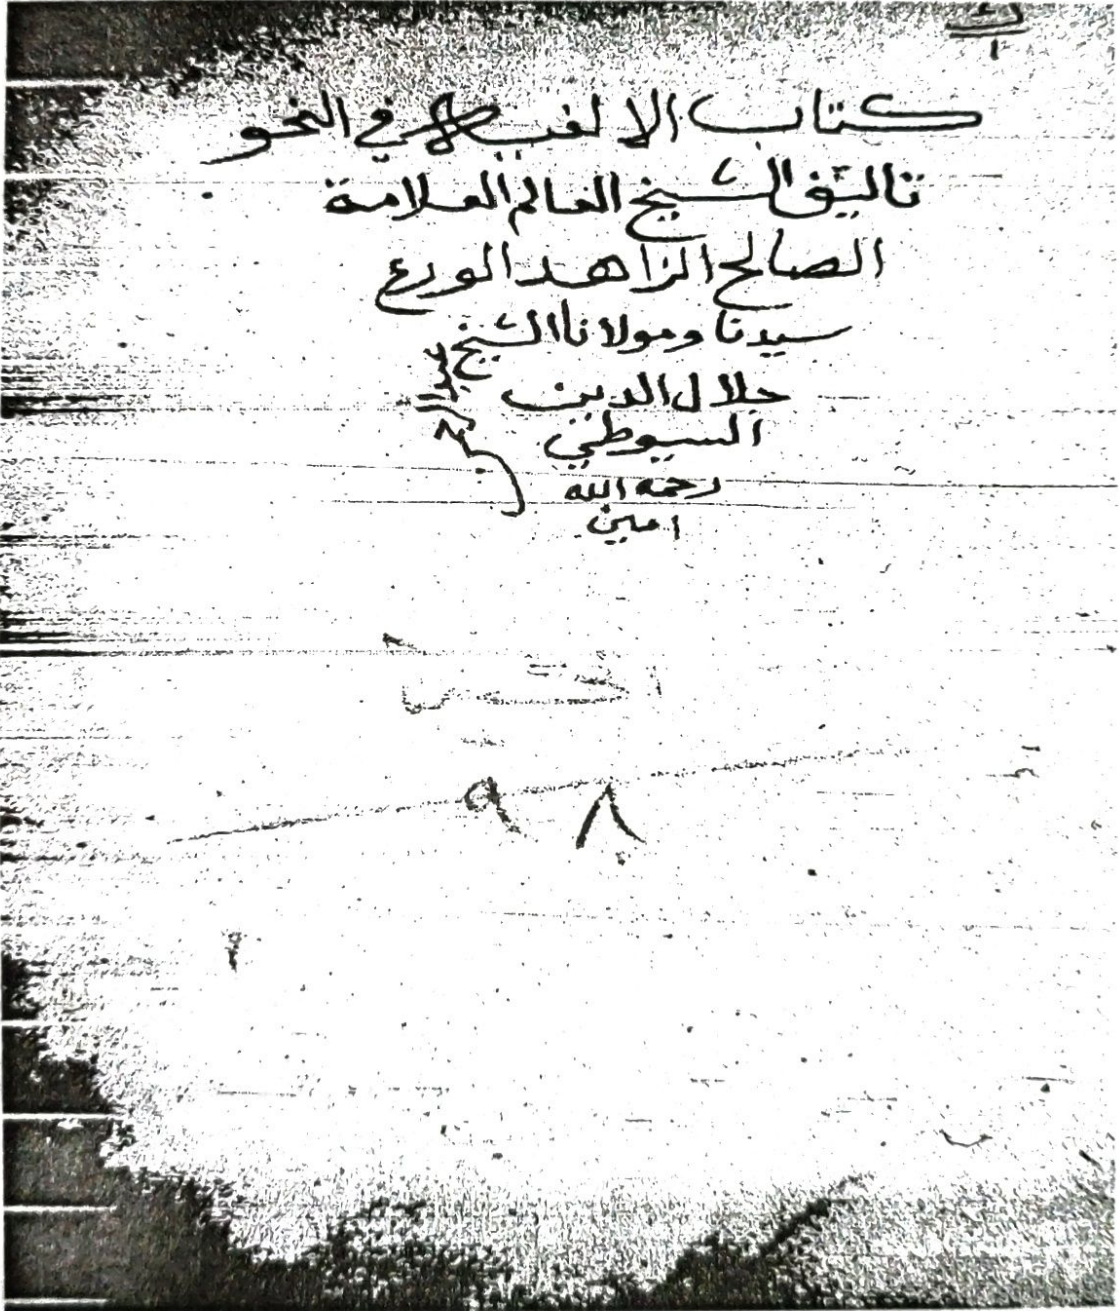 كتاب الالفيه في النحو
تاليف الشيخ العالم العلامة
الصالح الزاهد الورع
سيدنا ومولانا الشيخ
جلال الدين
السيوطي
رحمه الله
امين
٩ ٨